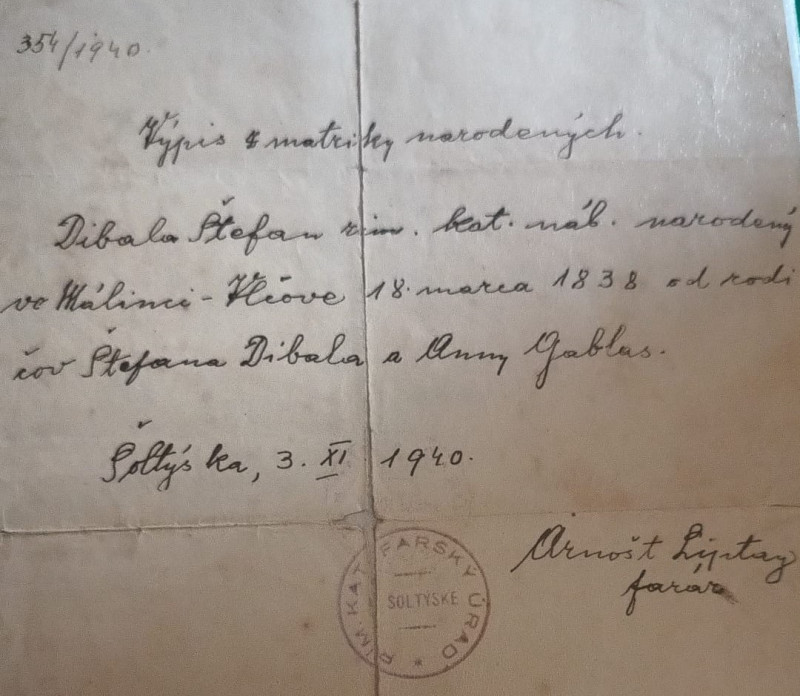 354/1940.
Výpis z matriky narodených.
Dibala Štefan rim. kat. náb. narodený
ve Málinci - Vlčove 18. marca 1838 od rodi
čov Štefana Dibala a Anny Gablas.
Šoltýska, 3. XI 1940.
Arnošt Liptay
farár
RÍM. KAT. FARSKÝ ÚRAD *
SOLTÝSKE